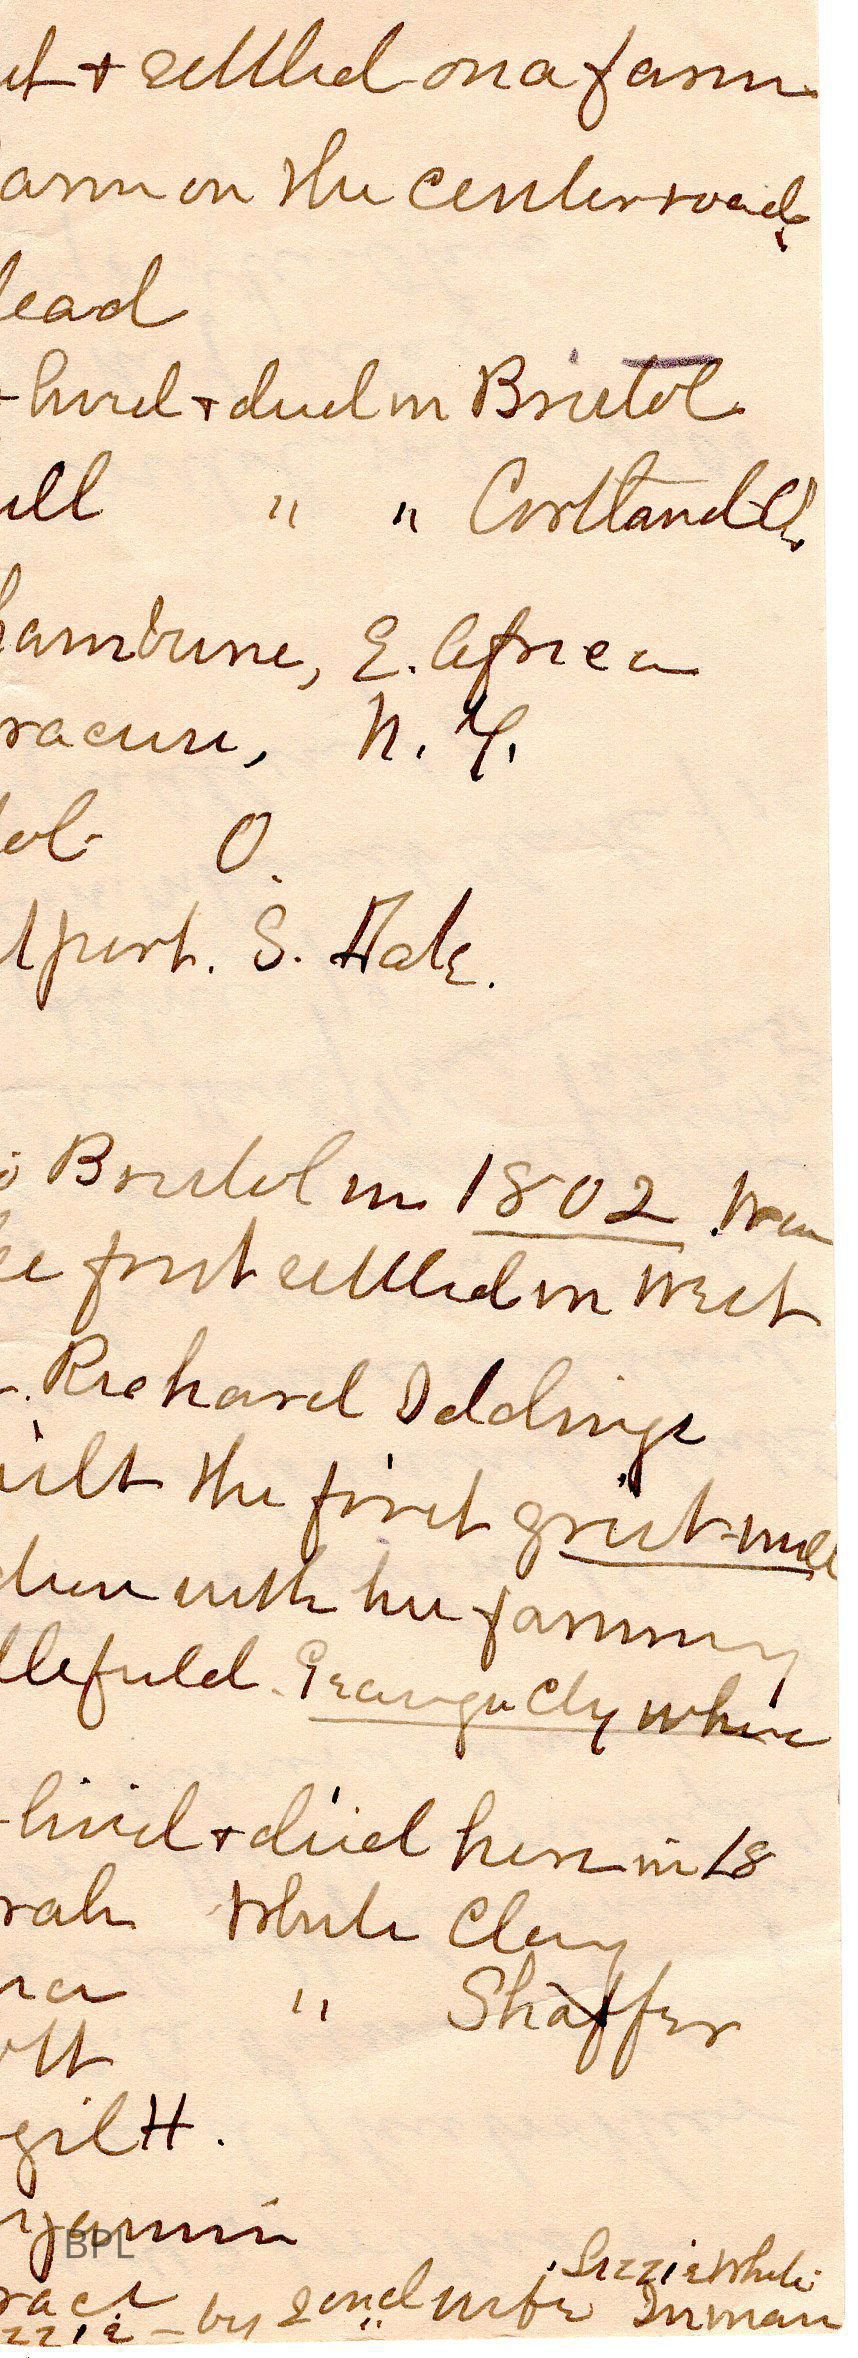 ut + settled on a farm
arm on the center road,
lead
- lived + died in Bristol
ill " " Cortland O,
hambune, E. Africa
racuse, N. Y.
tol- O.
lport. S. Dak.
o Bristol in 1802. Was
he first settled in West
-. Richard Iddings
uilt the first grist-mill
dren with his family
llefield. Geauga Cty where
- lived + died here in 18
rah White Clay
ra " Shaffer
ott
gil H.
njamin
BPL
Lizzie White
race
zzie - by second wife Inman